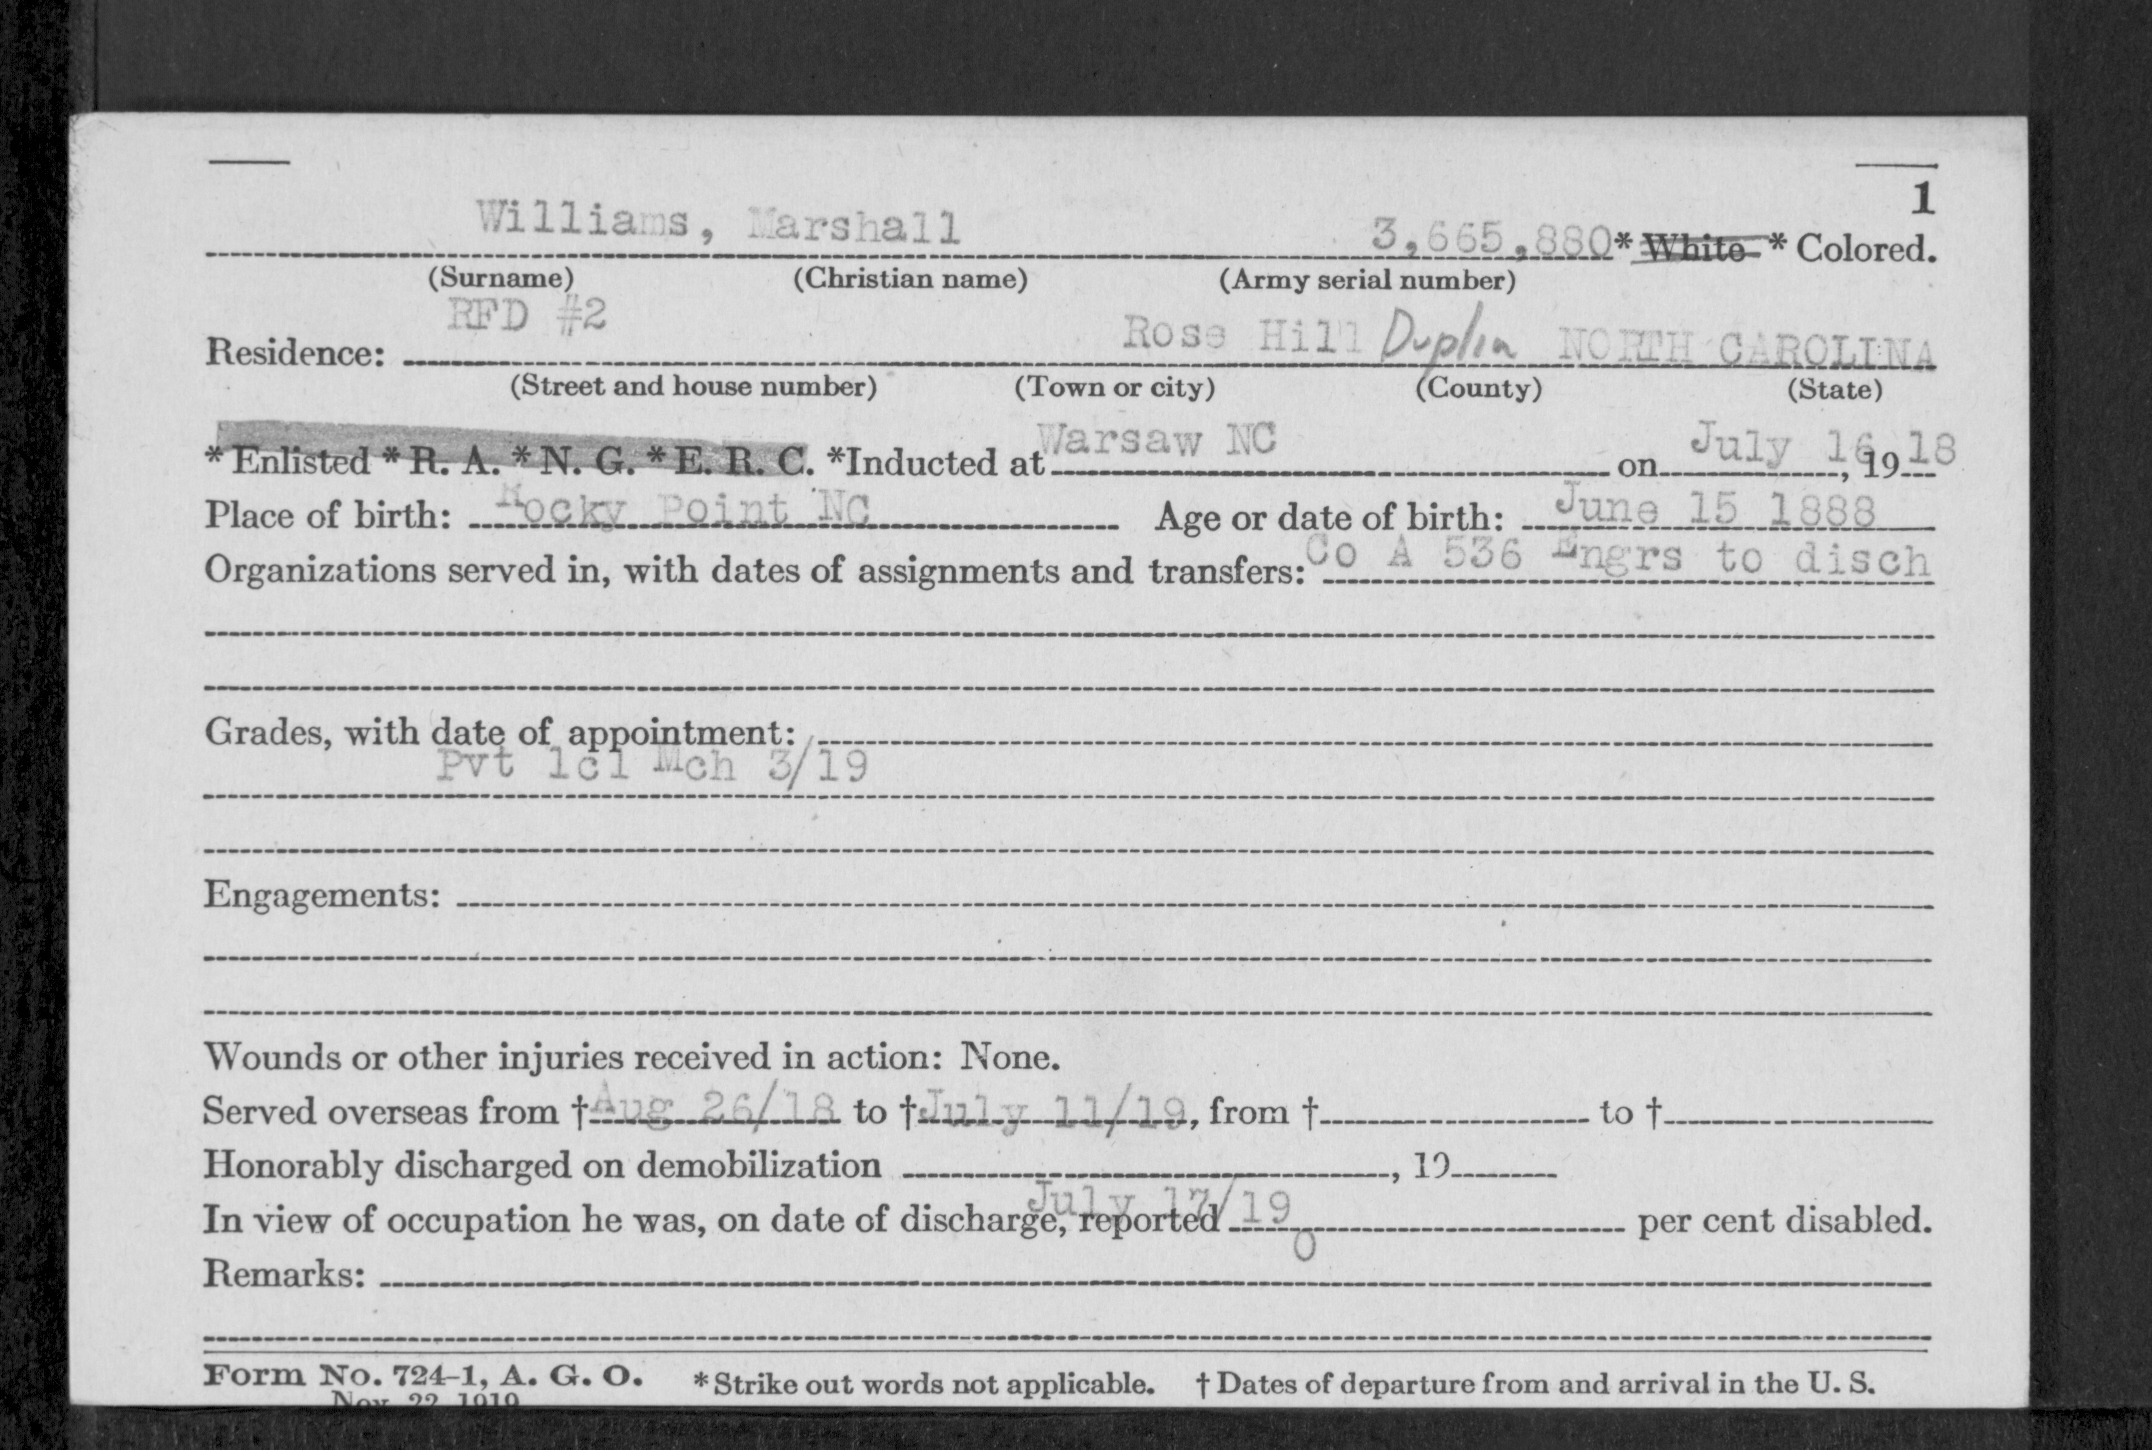 1
Williams, Marshall 3,665,880 * White * Colored.
(Surname) (Christian name) (Army serial number)
RFD #2 Rose Hill Duplin NORTH CAROLINA
Residence:
(Street and house number) (Town or city) (County) (State)
* Enlisted * R. A. * N. G. * E. R. C. *Inducted at Warsaw NC on July 16, 1918
Place of birth: Rocky Point NC Age or date of birth: June 15 1888
Organizations served in, with dates of assignments and transfers: Co A 536 Engrs to disch
Grades, with date of appointment:
Pvt 1cl Mch 3/19
Engagements:
Wounds or other injuries received in action: None.
Served overseas from † Aug 26/18 to † July 11/19, from † to †
Honorably discharged on demobilization , 19
July 17/19
In view of occupation he was, on date of discharge, reported per cent disabled.
0
Remarks:
Form No. 724-1, A. G. O. * Strike out words not applicable. † Dates of departure from and arrival in the U. S.
Nov. 22, 1919